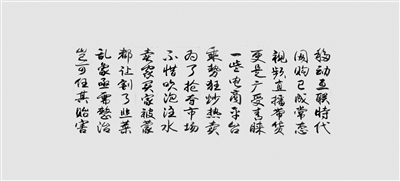 移动互联時代
网购已成常态
视频直播带货
更是广受青睐
一些电商平台
乘势狂炒热卖
为了抢夺市场
不惜吹泡注水
卖家买家被蒙
都让割了韭菜
乱象亟需整治
岂可任其贻害